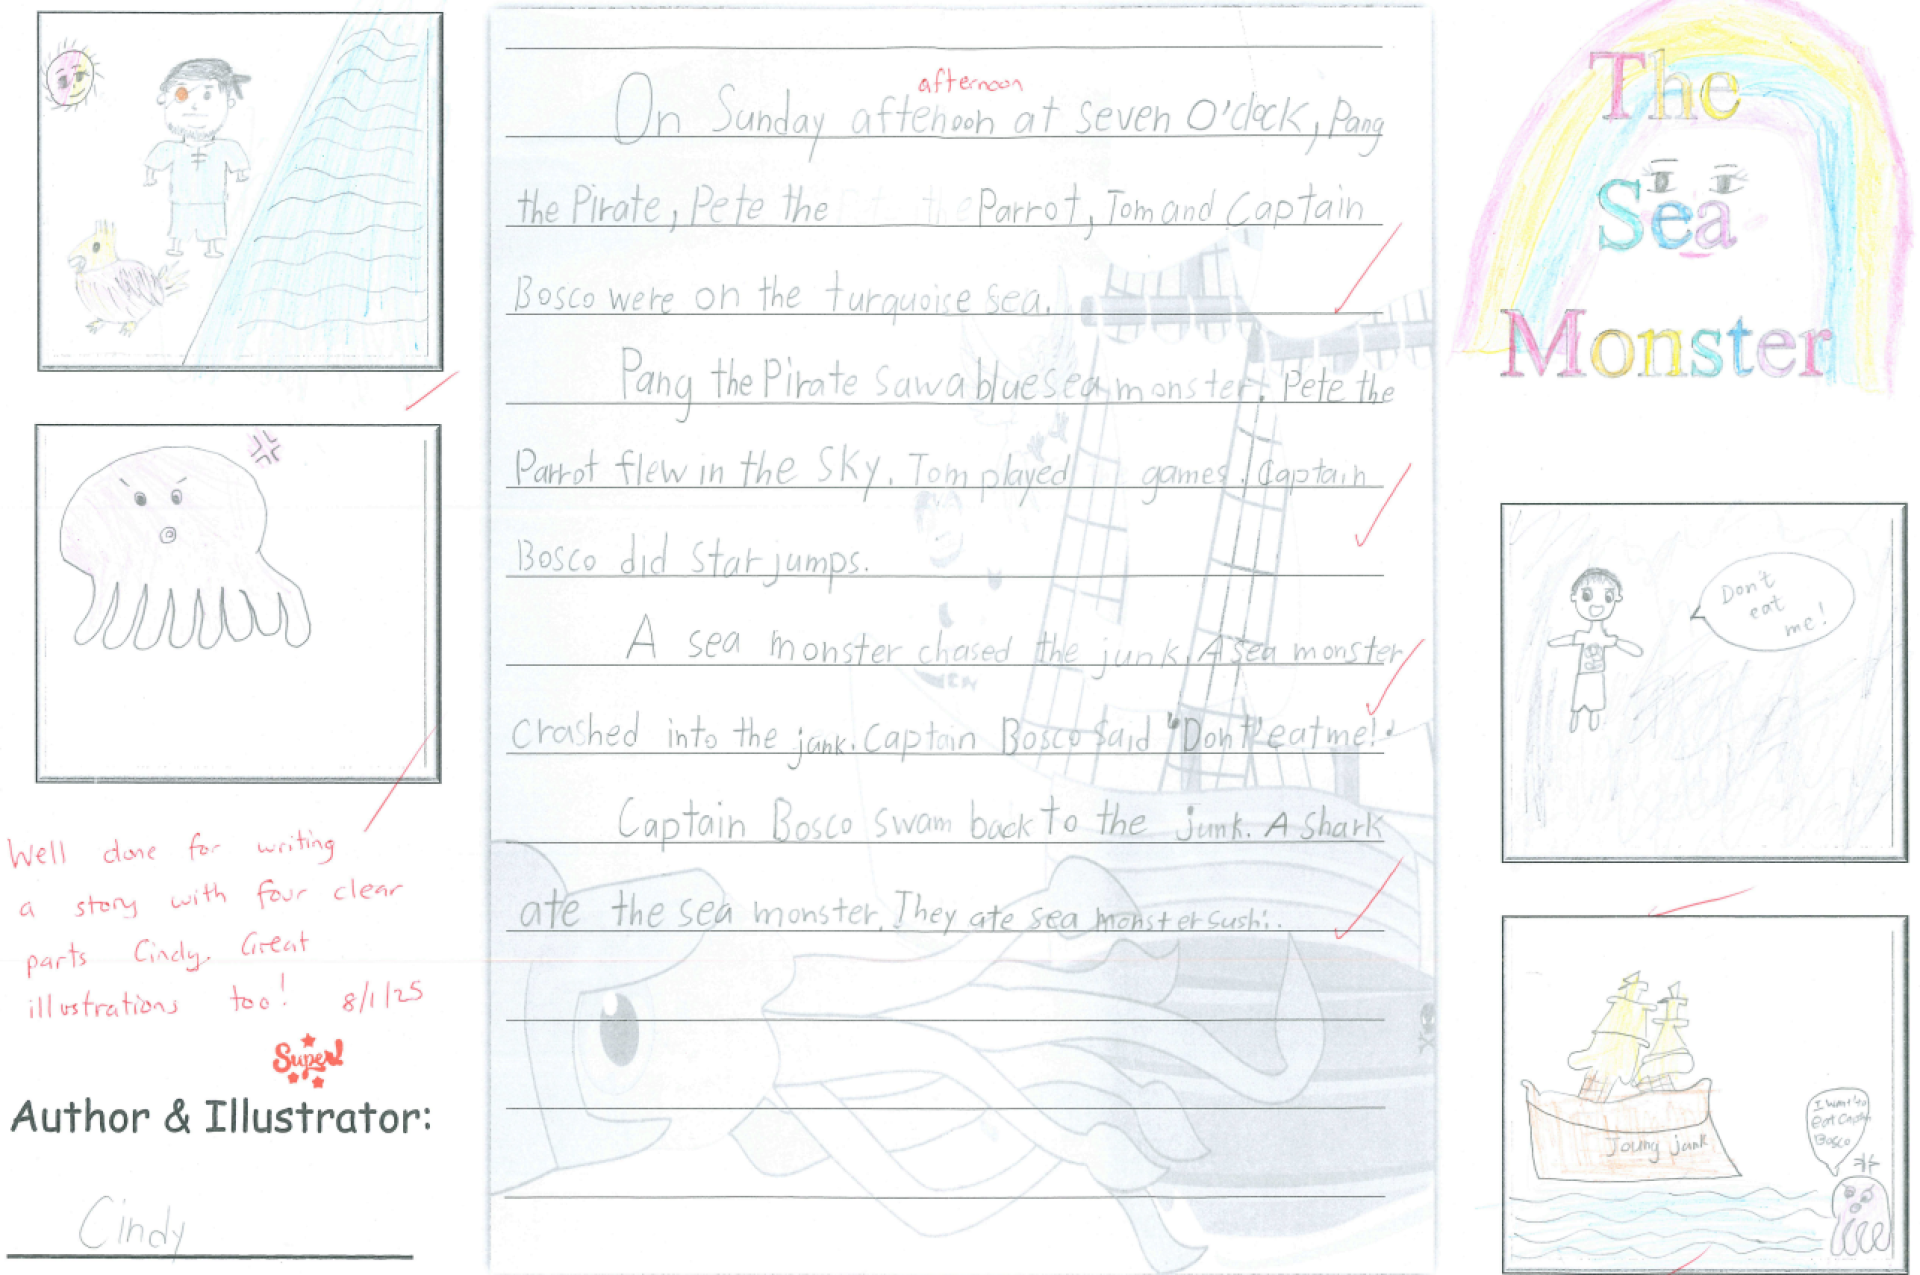 The
Sea
Monster
afternoon
On Sunday aftehoon at seven O'clock, Pang
the Pirate, Pete the Parrot, Tom and Captain
Bosco were on the turquoise sea.
Pang the Pirate saw a blue sea monster. Pete the
Parrot flew in the sky. Tom played games. Captain
Bosco did star jumps.
A sea monster chased the junk. A sea monster
crashed into the junk. Captain Bosco said "Don't eat me!"
Captain Bosco swam back to the junk. A shark
ate the sea monster. They ate sea monster sushi.
Well done for writing
a story with four clear
parts Cindy. Great
illustrations too! 8/1/25
Super!
Author & Illustrator:
Cindy
Don't
eat
me!
junk
I want to
eat Captain
Bosco